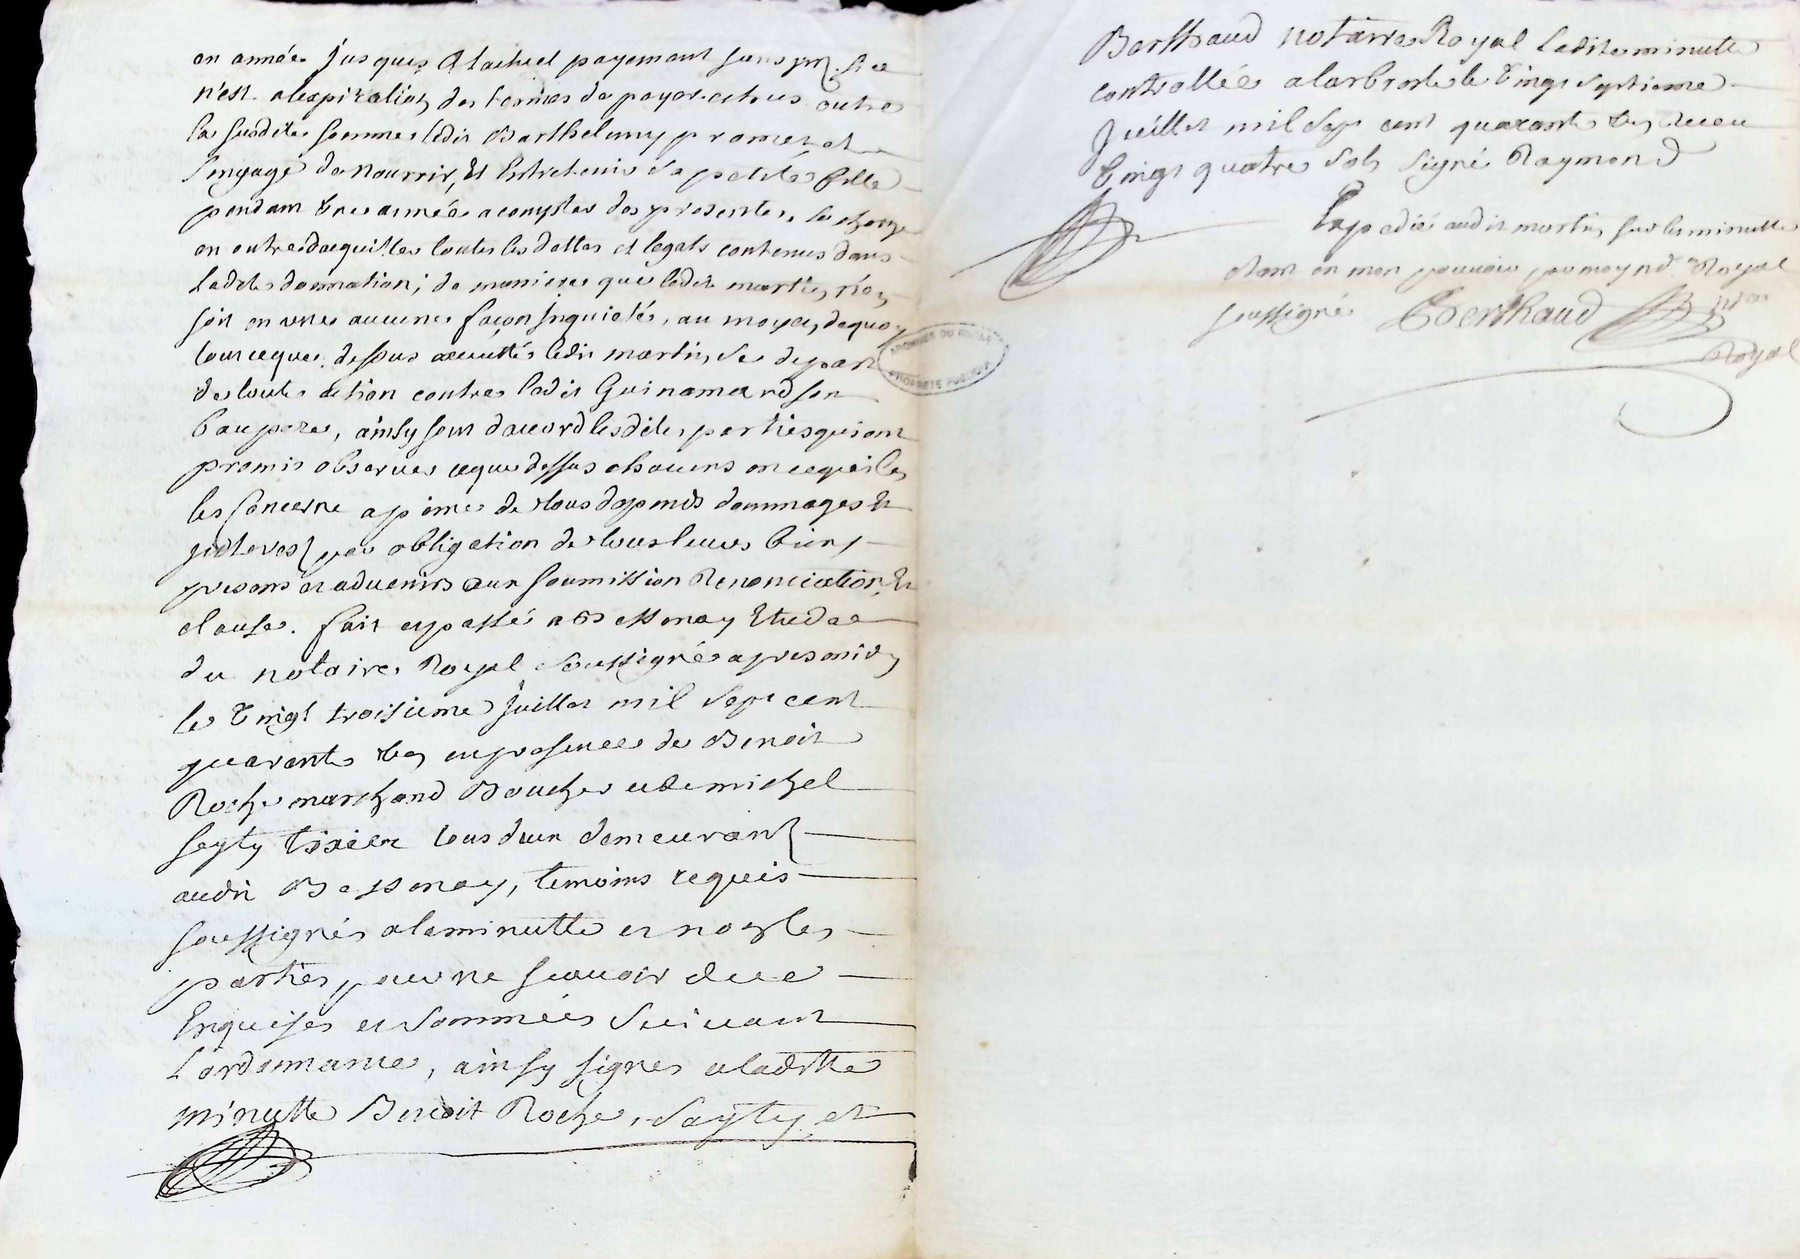 en année jusques a lactuel payement sans prj. si ce
n'est a lexpiration des termes de payer et sus outre
la susdite somme ledit Barthelemy promet et
s'engage de nourrir, Et Entretenir sa petite fille
pendant une année a compter des presentes, se charge
en outre dacquitter toutes les dettes et legats contenus dans
ladite donnation; de maniere que ledit martin n'en
soit en une aucune façon inquieté, au moyen de quoy
tout ce que dessus accepté ledit martin se depart
de toute action contre ledit Guinamard son
beau pere, ainsy sont daccord lesdites parties qui ont
promis observer ceque dessus chacuns en ce qui les
les Concerne a peine de tous depends dommages Et
interest par obligation de tous leurs biens
presents et advenirs aux soumission Renonciation, Et
clauses. fait et passé a Bessenay Etude
du notaire Royal soussigné apres midy
le Vingt troisieme Juillet mil sept cent
quarante un en presence de Benoit
Roche marchand Boucher et de michel
Seyty tixier tous deux demeurant
audit Bessenay, temoins requis
soussignés a la minutte et non les
parties pour ne scavoir de ce
Enquises et sommées suivant
L'ordonnance, ainsy signes a laditte
minutte Benoit Roche, Sayty, et
Berthaud notaire Royal ladite minutte
controllée a larbresle le Vingt septieme
Juillet mil sept cent quarante un reçu
Vingt quatre sols signé Raymond
Expedié audit martin sur la minutte
etant en mon pouvoir par moy nore Royal
soussigné Berthaud nore
Royal
ARCHIVES DU RHÔNE
PROPRIÉTÉ PUBLIQUE